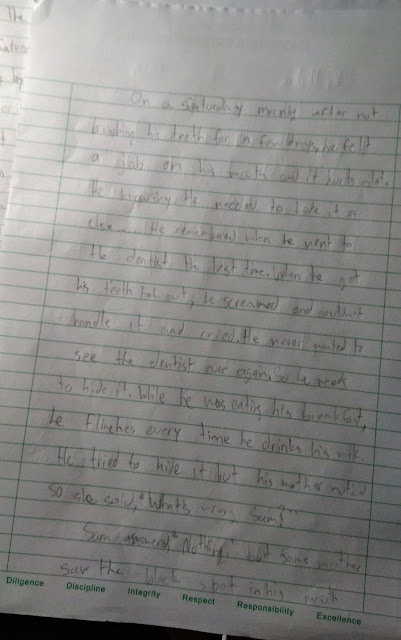 The
On a Saturday morning after not
brushing his teeth for a few days, he felt
a on his mouth and it hurts alot.
He knew why. He needed to hide it or
else... He remembered when he went to
the dentist the last time. When he got
his teeth out, he screamed and couldn't
handle it and cried. He never wanted to
see the dentist ever again. So he needs
to hide it. While he was eating his breakfast,
he flinches every time he drinks his milk.
He tried to hide it but his mother noticed
so she said, "What's wrong Sam?"
Sam answered "Nothing," but Sams mother
saw the black spot in his mouth
Diligence Discipline Integrity Respect Responsibility Excellence